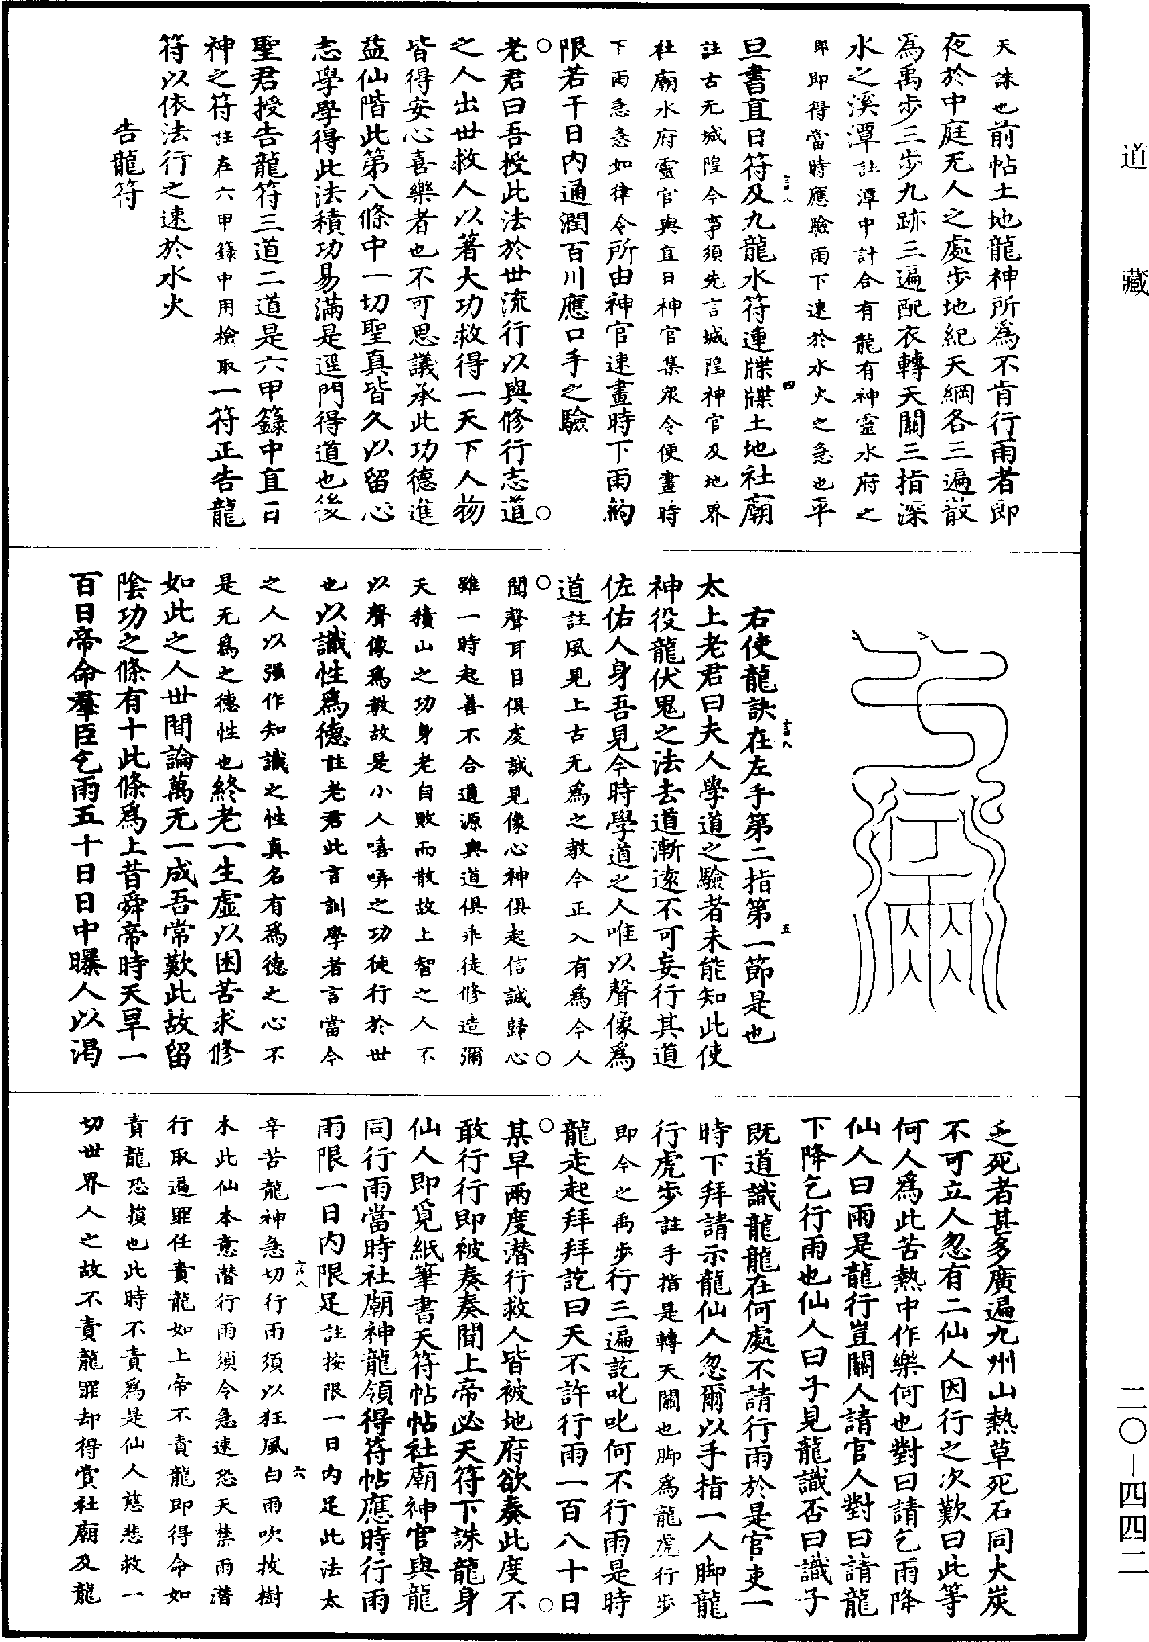 天誅也前帖土地龍神所為不肯行雨者即
夜於中庭无人之處步地紀天綱各三遍散
為禹步三步九跡三遍配衣轉天關三指深
水之溪潭註潭中計合有龍有神靈水府之
即即得當時應驗雨下速於水火之急也平
旦書直日符及九龍水符連牒牒土地社廟
註古无城隍今事須先言城隍神官及地界
社廟水府靈官與直日神官集眾令便晝時
下雨急急如律令所由神官速晝時下雨約
限若干日內通潤百川應口手之驗
老君曰吾授此法於世流行以與修行志道
之人出世救人以著大功救得一天下人物
皆得安心喜樂者也不可思議承此功德進
益仙階此第八條中一切聖真皆久以留心
志學學得此法積功易滿是逕門得道也後
聖君授告龍符三道二道是六甲籙中直日
神之符註在六甲籙中用檢取一符正告龍
符以依法行之速於水火
告龍符
右使龍訣在左手第二指第一節是也
太上老君曰夫人學道之驗者未能知此使
神役龍伏鬼之法去道漸遠不可妄行其道
佐佑人身吾見今時學道之人唯以聲像為
道註風見上古无為之教今正入有為今人
聞聲耳目俱虔誠見像心神俱起信誠歸心
雖一時起善不合道源與道俱乖徒修造彌
天積山之功身老自敗而散故上智之人不
以聲像為教故是小人嘻哢之功徒行於世
也以識性為德註老君此言訓學者言當今
之人以强作知識之性真名有為德之心不
是无為之德性也終老一生虛以困苦求修
如此之人世間論萬无一成吾常歎此故留
陰功之條有十此條為上昔舜帝時天旱一
百日帝命羣臣乞雨五十日日中曝人以渴
乏死者甚多廣遍九州山熱草死石同大炭
不可立人忽有二仙人因行之次歎曰此等
何人為此苦熱中作樂何也對曰請乞雨降
仙人曰雨是龍行豈關人請官人對曰請龍
下降乞行雨也仙人曰子見龍識否曰識子
既道識龍龍在何處不請行雨於是官吏一
時下拜請示龍仙人忽爾以手指一人腳龍
行虎步註手指是轉天關也腳為龍虎行步
即今之禹步行三遍訖叱叱何不行雨是時
龍走起拜拜訖曰天不許行雨一百八十日
某早兩度潛行救人皆被地府欲奏此度不
敢行行即被奏奏聞上帝必天符下誅龍身
仙人即覓紙筆書天符帖帖社廟神官與龍
同行雨當時社廟神龍領得符帖應時行雨
雨限一日內限足註按限一日內足此法太
辛苦龍神急切行雨須以狂風白雨吹拔樹
木此仙本意潛行雨須令急速恐天禁雨潛
行取過罪任責龍如上帝不責龍即得命如
責龍恐損也此時不責為是仙人慈悲救一
切世界人之故不責龍罪却得賞社廟及龍
道藏
二〇-四四二